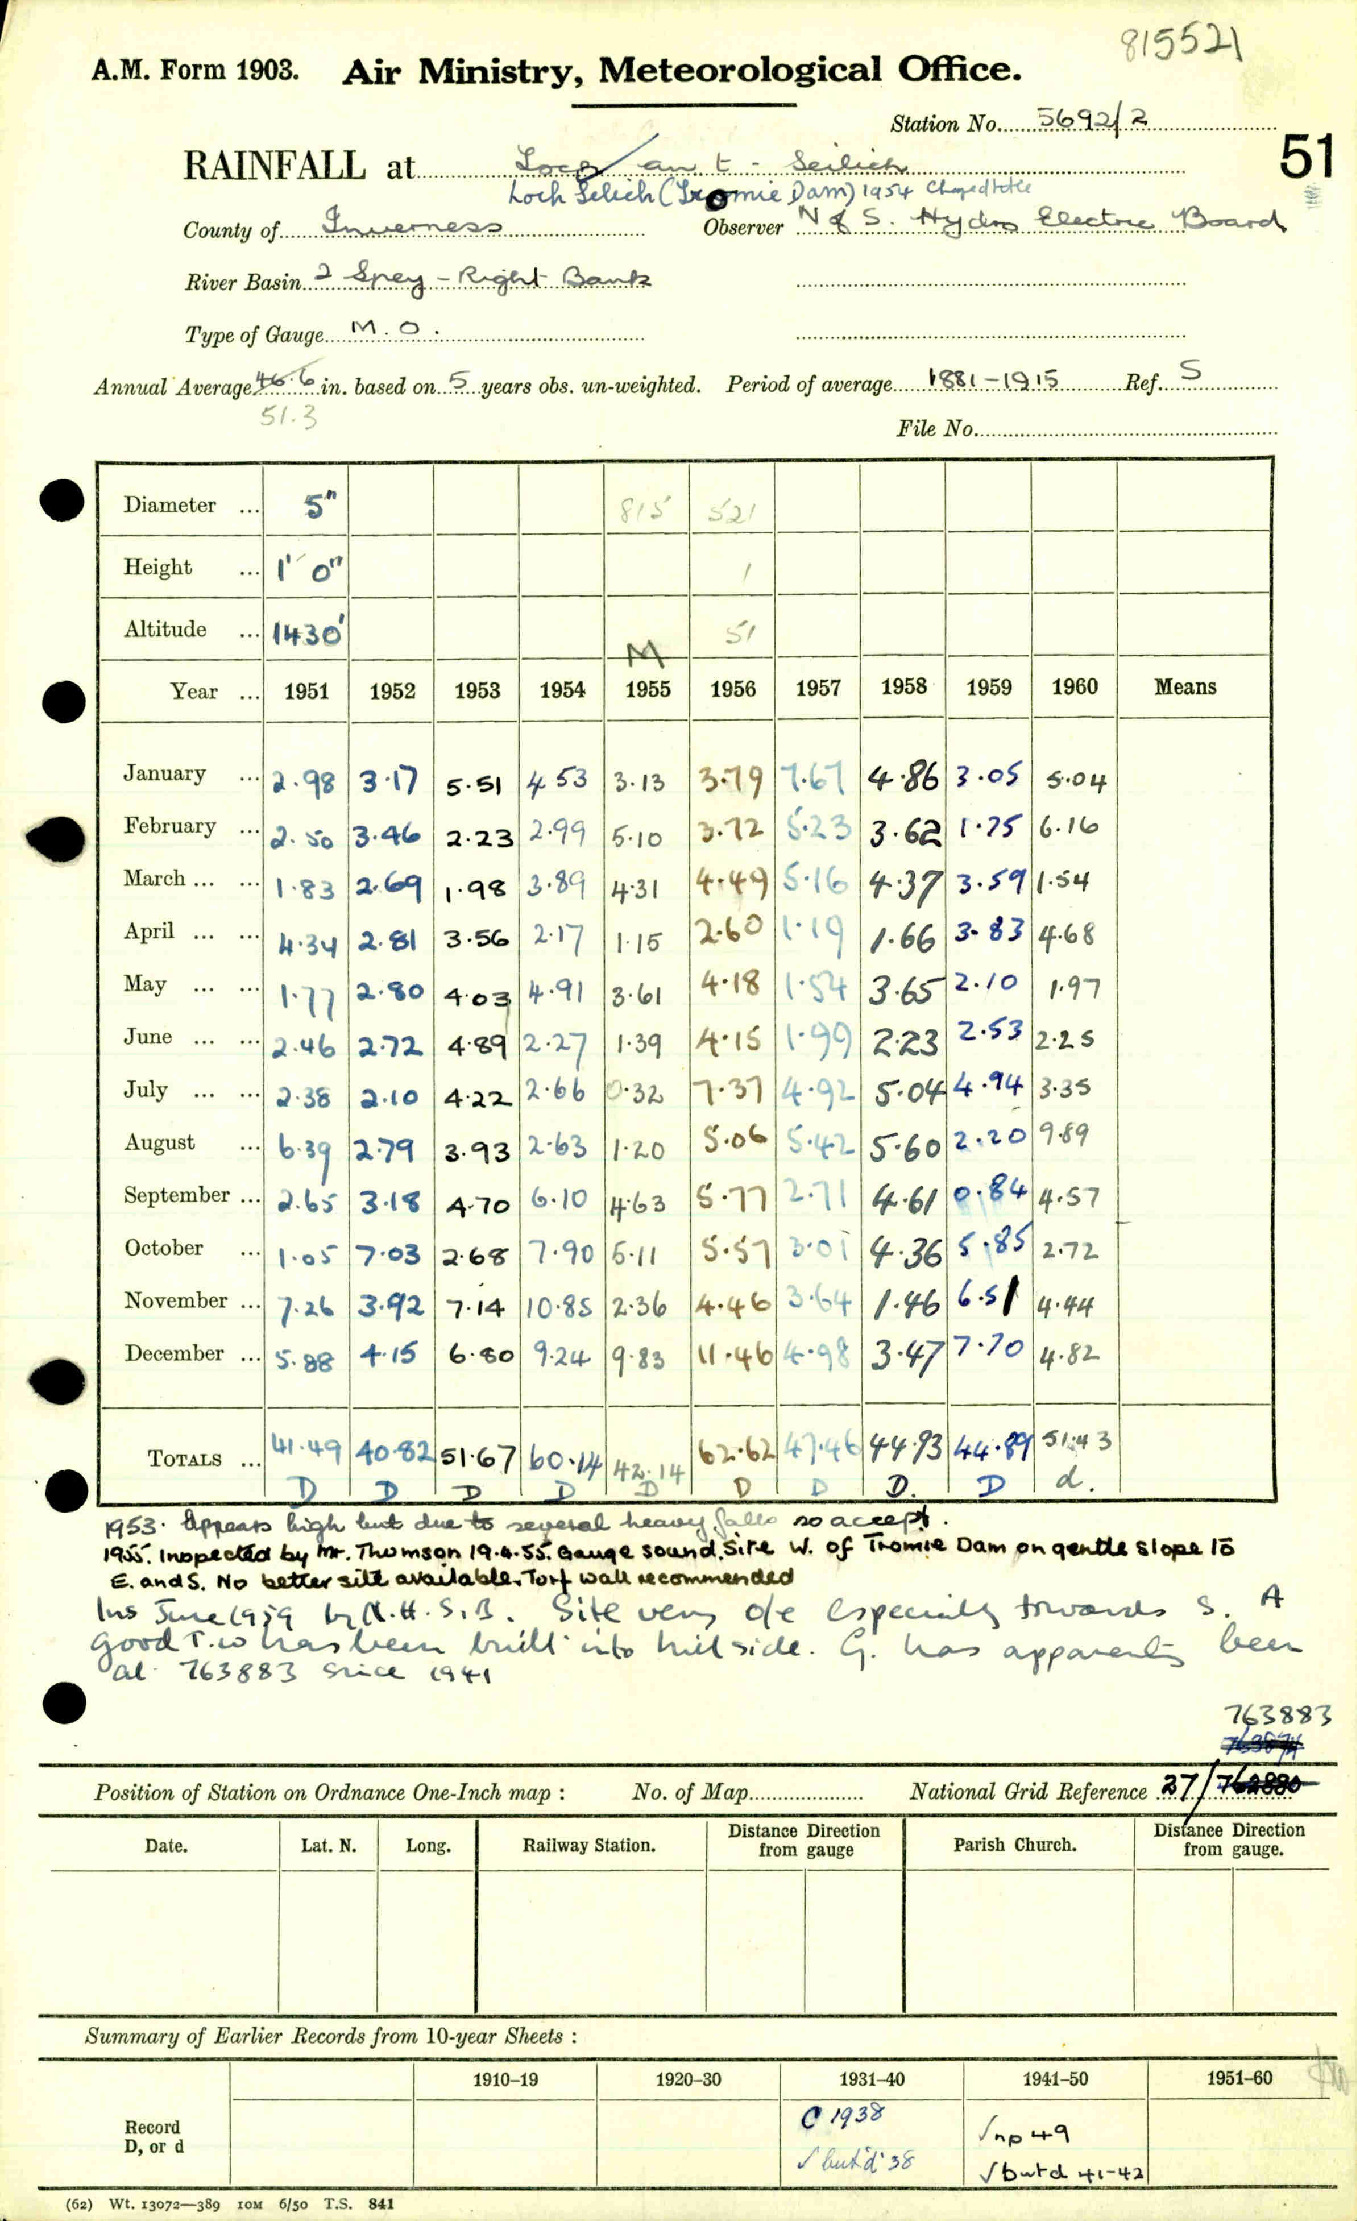 815521
A.M. Form 1903. Air Ministry, Meteorological Office.
Station No. 5692/2
51
RAINFALL at Loch an t - Seilich
Loch Seilich (Tromie Dam) 1954 Changed title
County of Inverness Observer N of S. Hydro Electric Board
River Basin 2 Spey - Right Bank
Type of Gauge M.O.
Annual Average 46.6 in. based on 5 years obs. un-weighted. Period of average 1881-1915 Ref. S
51.3
File No.
Diameter ... 5" 815 521
Height ... 1' 0" 1
Altitude ... 1430' 51
M
Year ... 1951 1952 1953 1954 1955 1956 1957 1958 1959 1960 Means
January ... 2.98 3.17 5.51 4.53 3.13 3.79 7.67 4.86 3.05 5.04
February ... 2.50 3.46 2.23 2.99 5.10 3.72 5.23 3.62 1.75 6.16
March ... ... 1.83 2.69 1.98 3.89 4.31 4.49 5.16 4.37 3.59 1.54
April ... ... 4.34 2.81 3.56 2.17 1.15 2.60 1.19 1.66 3.83 4.68
May ... ... 1.77 2.80 4.03 4.91 3.61 4.18 1.54 3.65 2.10 1.97
June ... ... 2.46 2.72 4.89 2.27 1.39 4.15 1.99 2.23 2.53 2.25
July ... ... 2.38 2.10 4.22 2.66 0.32 7.37 4.92 5.04 4.94 3.35
August ... 6.39 2.79 3.93 2.63 1.20 5.06 5.42 5.60 2.20 9.89
September ... 2.65 3.18 4.70 6.10 4.63 5.77 2.71 4.61 0.84 4.57
October ... 1.05 7.03 2.68 7.90 5.11 5.57 3.01 4.36 5.85 2.72
November ... 7.26 3.92 7.14 10.85 2.36 4.46 3.64 1.46 6.51 4.44
December ... 5.88 4.15 6.80 9.24 9.83 11.46 4.98 3.47 7.70 4.82
TOTALS ... 41.49 40.82 51.67 60.14 42.14 62.62 47.46 44.93 44.89 51.43
D D D D D D D D. D d.
1953. Appears high but due to several heavy falls so accept.
1955. Inspected by Mr. Thomson 19.4.55. Gauge sound. Site W. of Tromie Dam on gentle slope to
E. and S. No better site available. Turf wall recommended
Ins June 1959 by N.H.S.B. Site very o/e especially towards S. A
good T.W has been built into hillside. G. has apparently been
at 763883 since 1941
763883
Position of Station on Ordnance One-Inch map : No. of Map National Grid Reference 27/762880
Date. Lat. N. Long. Railway Station. Distance from gauge Direction Parish Church. Distance from gauge. Direction
Summary of Earlier Records from 10-year Sheets :
1910-19 1920-30 1931-40 1941-50 1951-60
Record
D, or d
C 1938
√ but 'd' 38
√ np 49
√ but d 41-42
(62) Wt. 13072—389 10M 6/50 T.S. 841